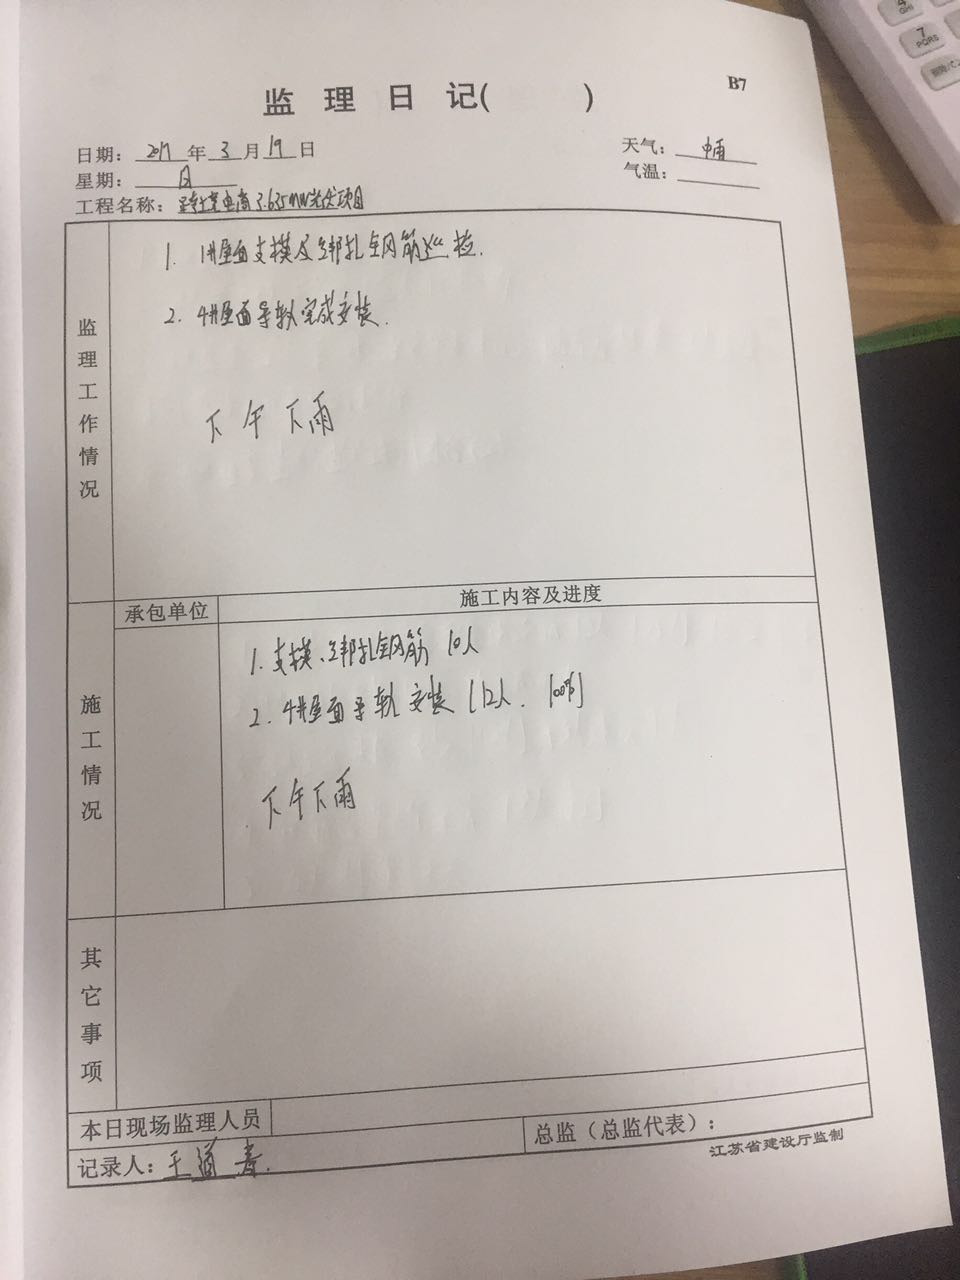 B7
监理日记( )
日期：2017年3月19日
天气：中雨
星期：日
气温：
工程名称： 电商3.635MW光伏项目
监理工作情况
1. 1#屋面支模及绑扎钢筋巡检.
2. 4#屋面导轨完成安装.
下午下雨
承包单位
施工内容及进度
施工情况
1. 支模、绑扎钢筋 10人
2. 4#屋面导轨安装 (12人. 100%)
下午下雨
其它事项
本日现场监理人员
记录人：王道春.
总监（总监代表）：
江苏省建设厅监制
4 GHI
7 PQRS